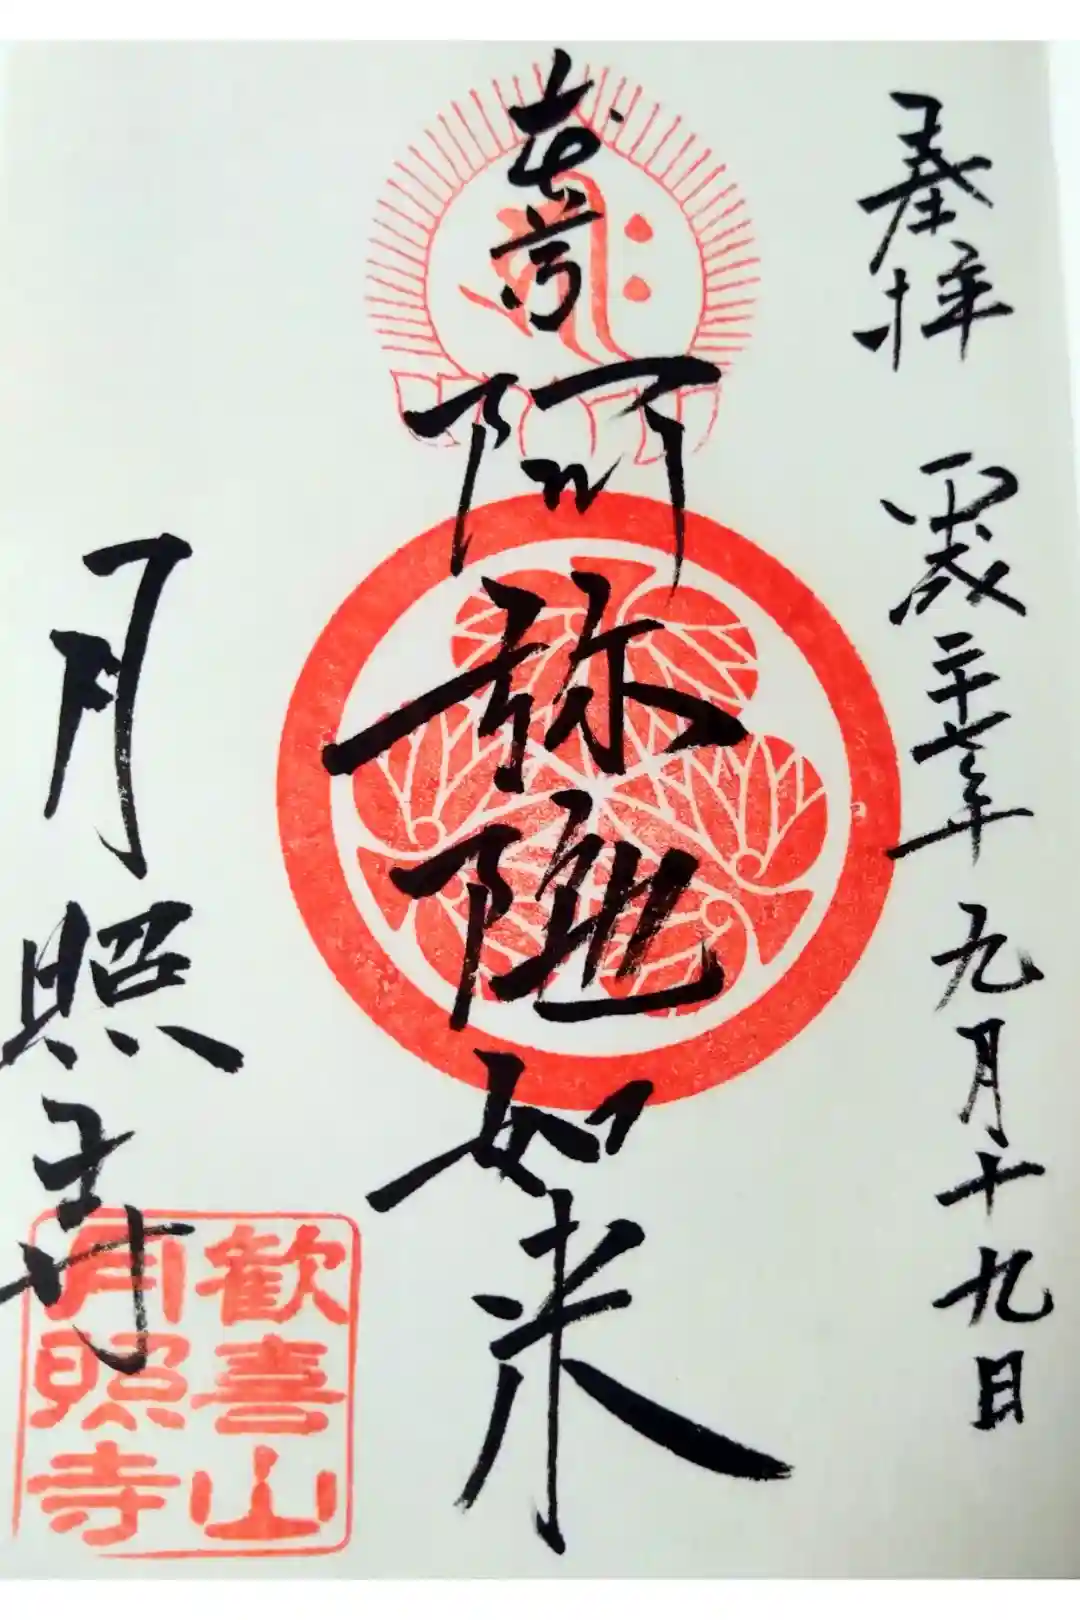 奉拝 平成二十七年九月十九日
阿弥陀如来
月照寺
歓喜山
月照寺